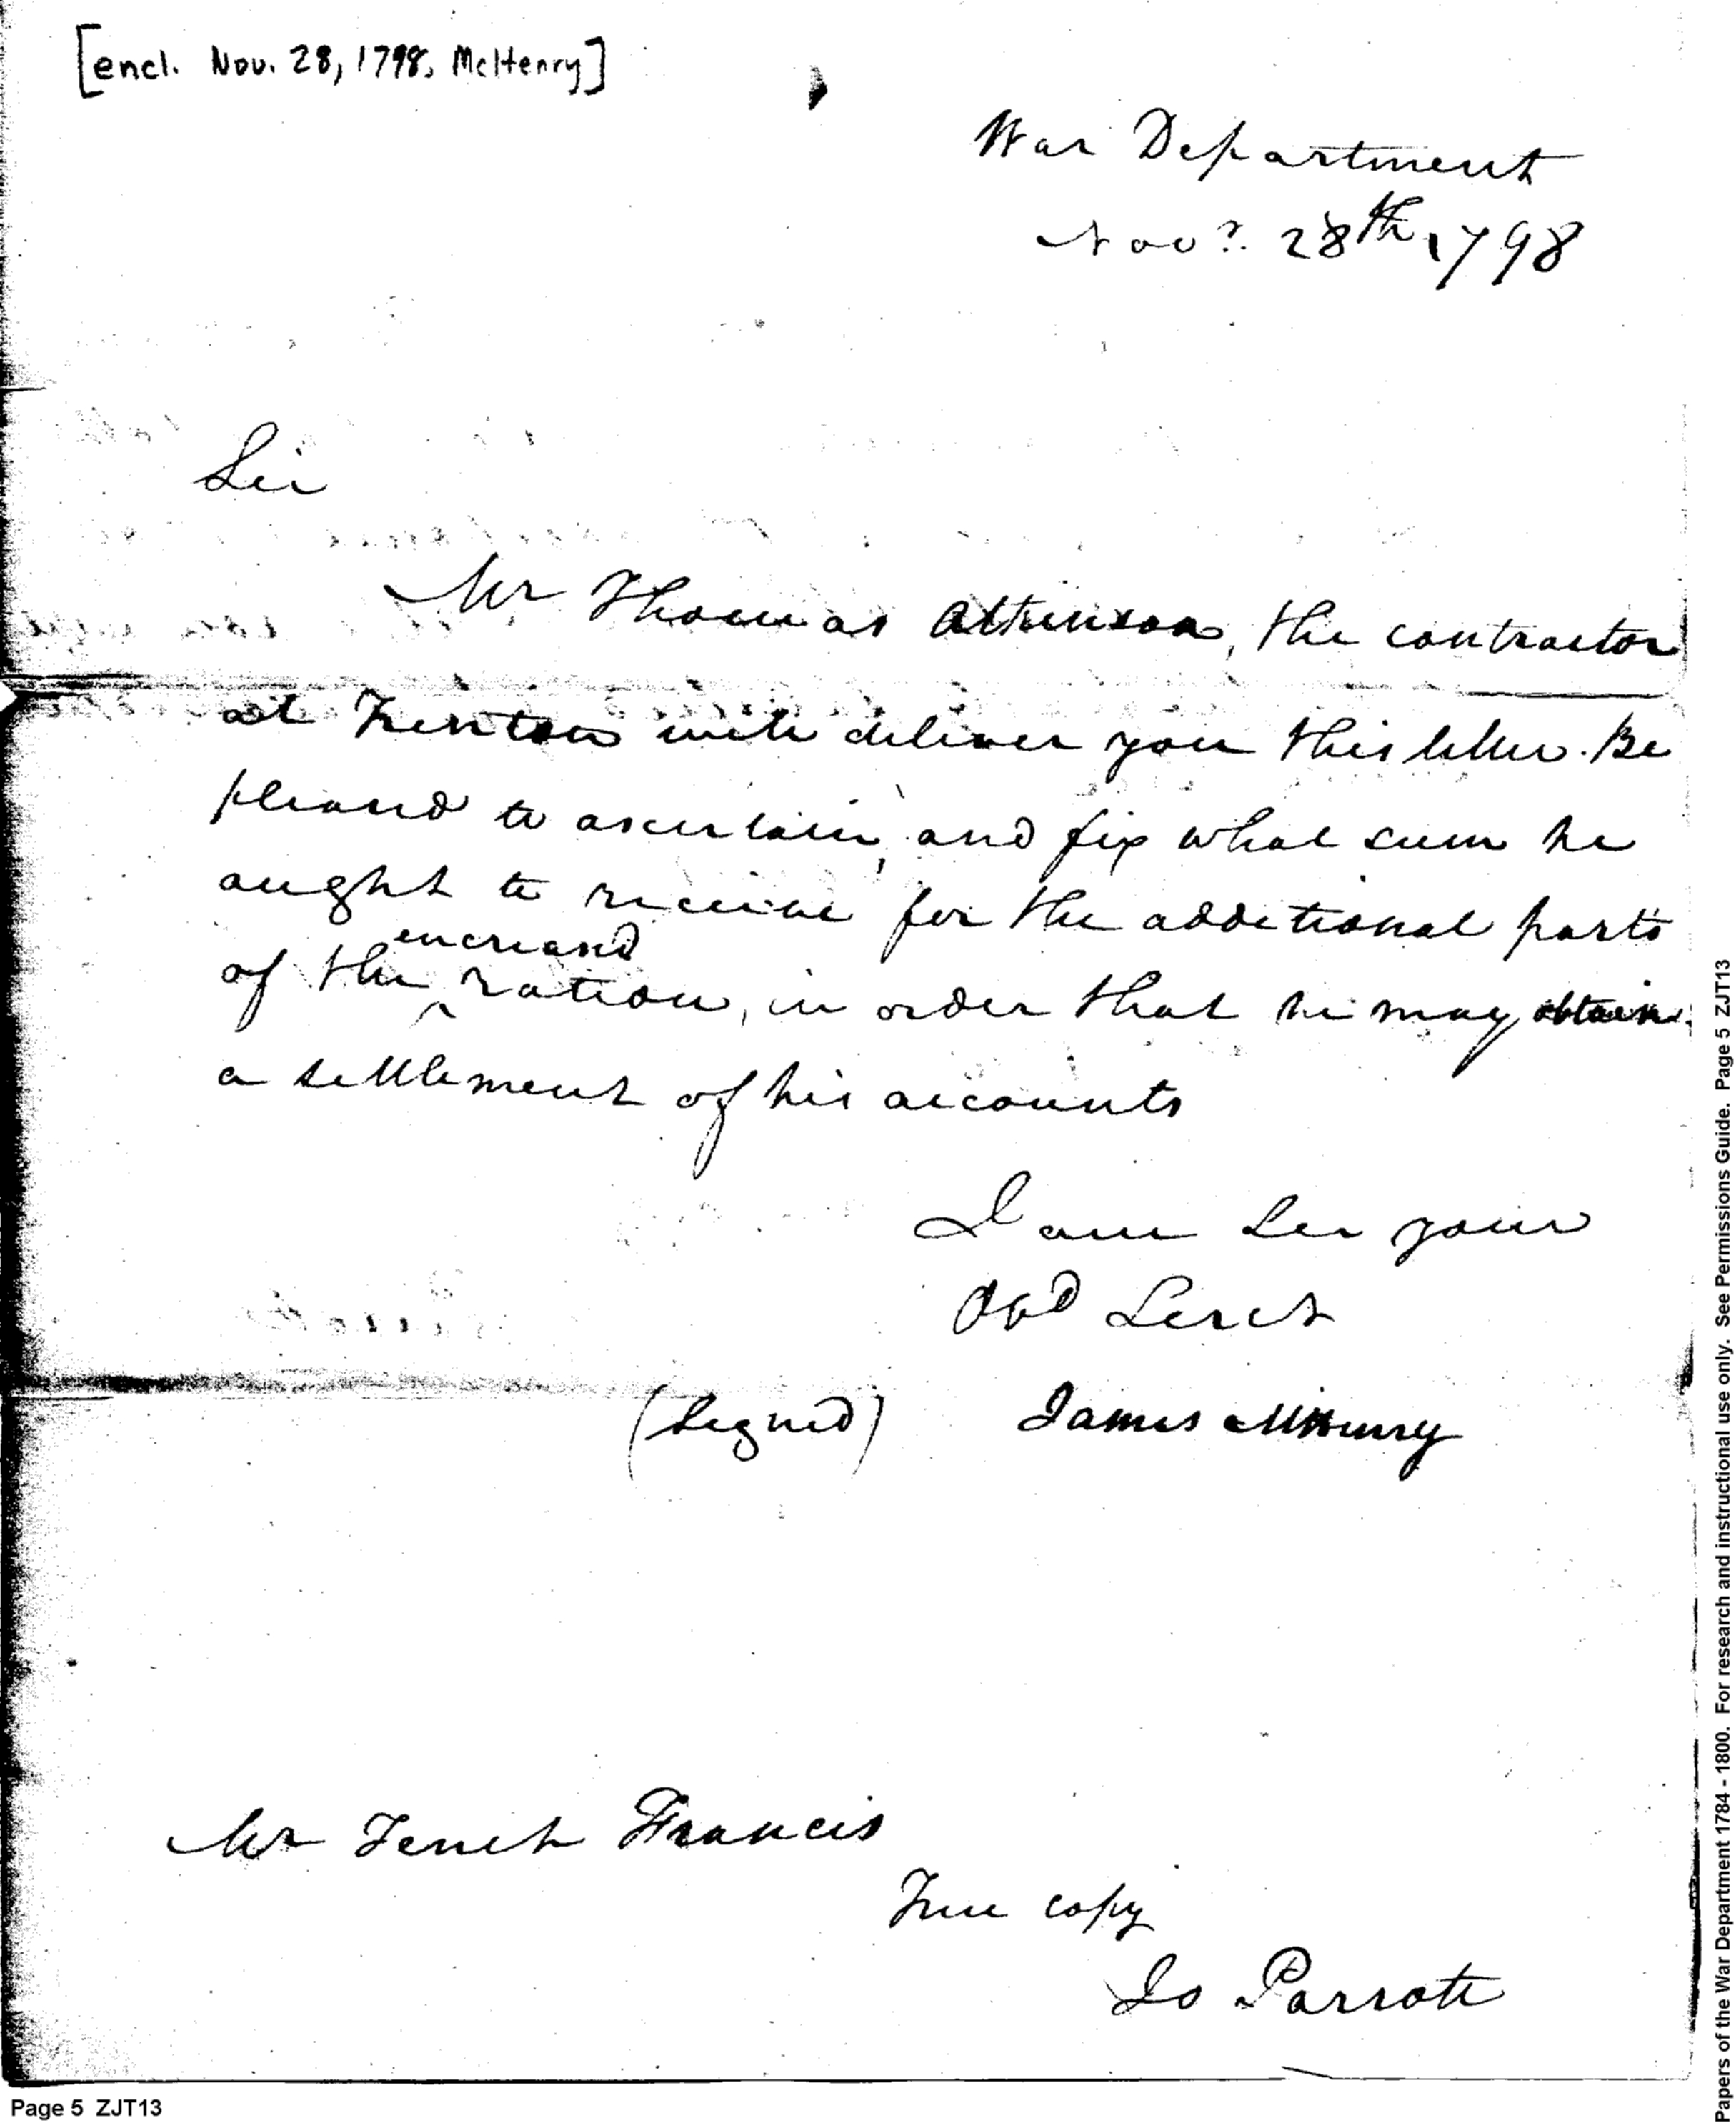 [encl. Nov. 28, 1798, McHenry]
War Department
Nov.r 28th 1798
Sir
Mr Thomas Attkinson, the contractor
at Trenton will deliver you this letter. Be
pleased to ascertain, and fix what sum he
aught to receive for the additional parts
encreased
of the ^ ration, in order that he may obtain
a settlement of his accounts
I am Sir your
Obd Servt
(Signed) James McHenry
Mr Tench Francis
True copy
Jo Parrott
Page 5 ZJT13
Papers of the War Department 1784 - 1800. For research and instructional use only. See Permissions Guide. Page 5 ZJT13